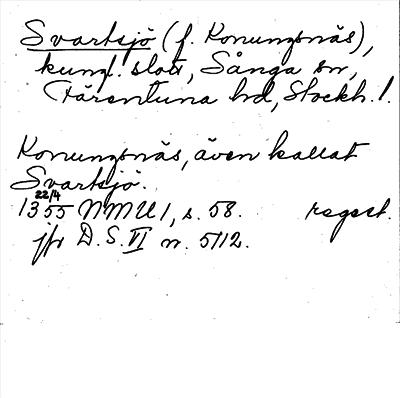 Svartsjö (f. Konungsnäs),
kungl. slott, Sånga sn,
Färentuna hd, Stockh. l.
Konungsnäs, även kallat
Svartsjö.
22/4
1355 NMU 1, s. 58. regest.
jfr D.S. VI n. 5112.